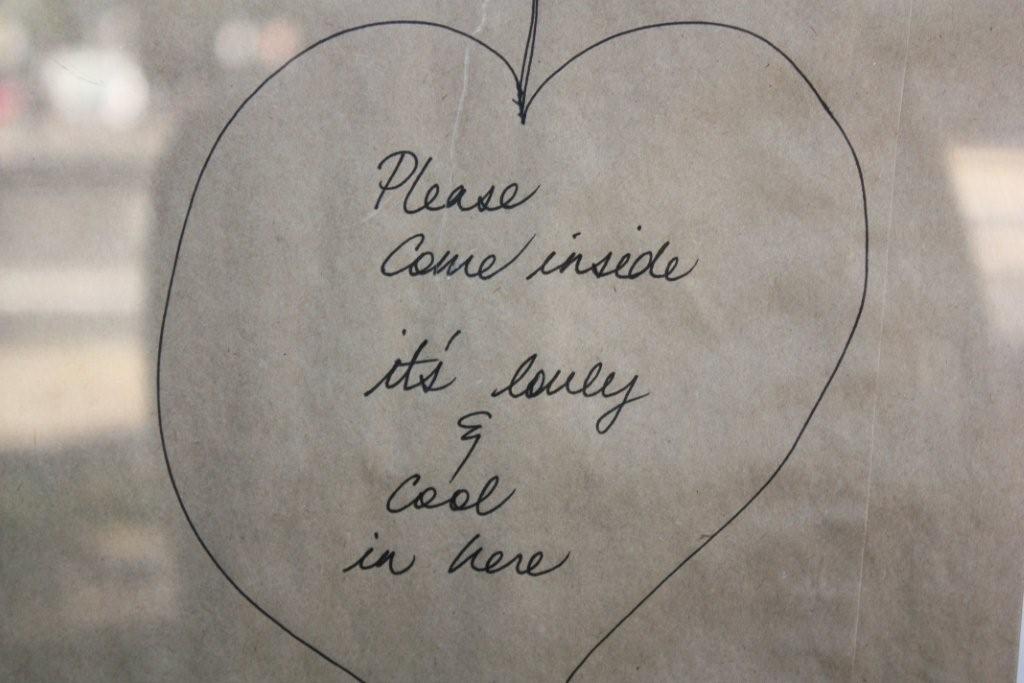 Please
Come inside
it's lovely
&
Cool
in here